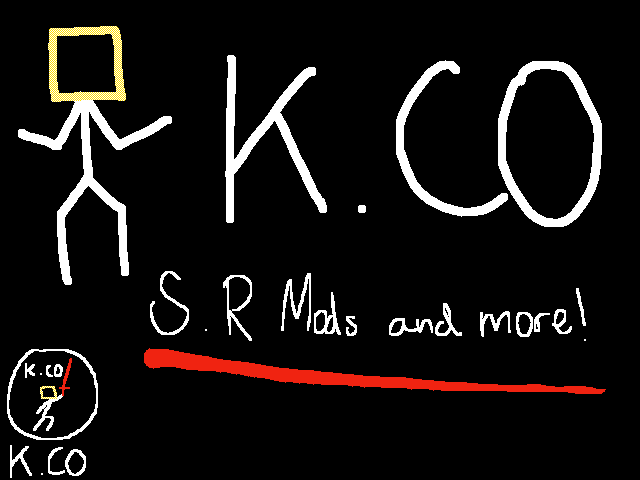 K.CO
S.R Mods and more!
K.CO
K.CO